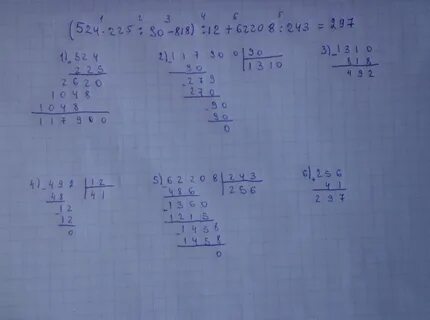 1 2 3 4 6 5
(524·225:90-818):12+62208:243=297
1) 524
225
2620
1048
1048
117900
2) -117900 | 90
90 | 1310
-279
270
-90
90
0
3) -1310
818
492
4) -492 | 12
48 | 41
-12
12
0
5) -62208 | 243
486 | 256
-1360
1215
-1458
1458
0
6) +256
41
297